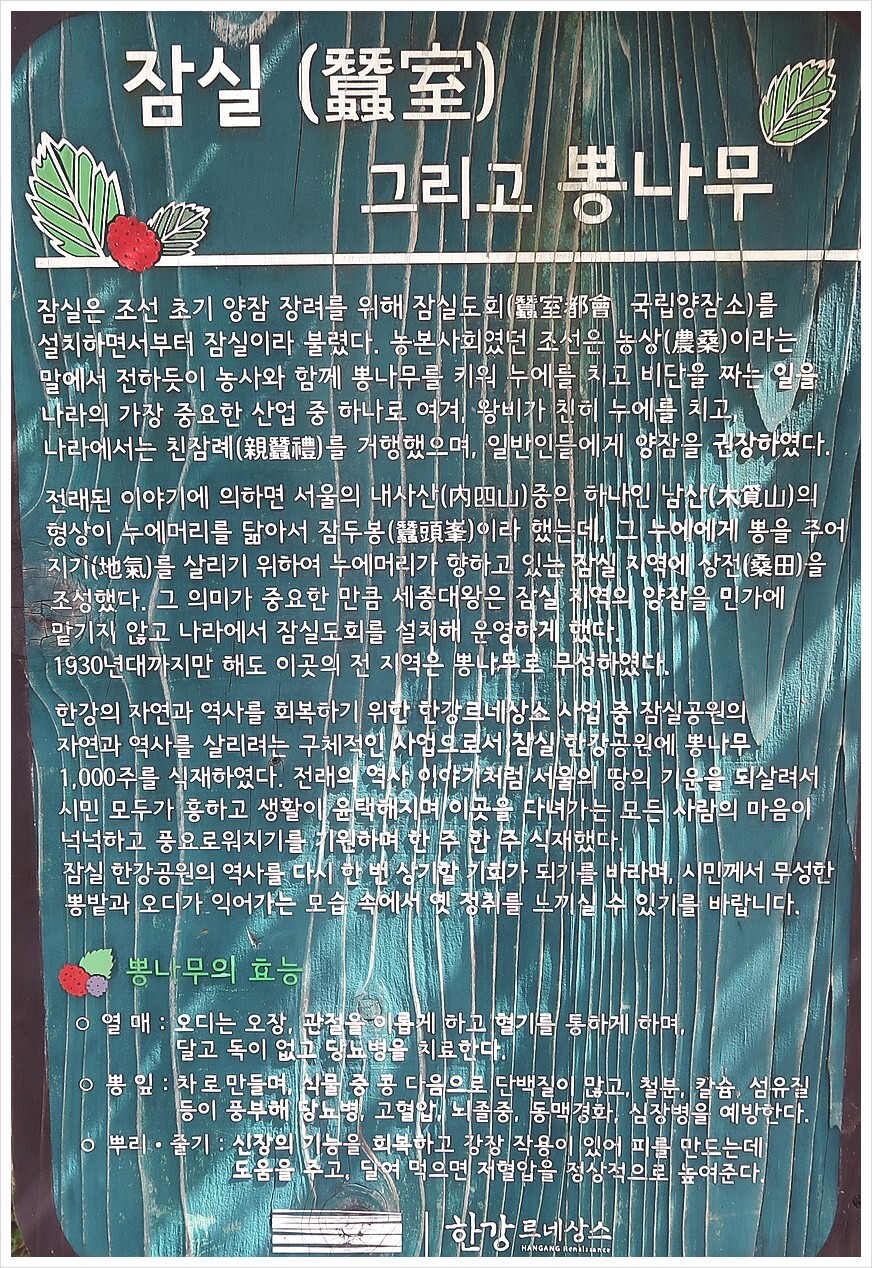 잠실 (蠶室)
그리고 뽕나무
잠실은 조선 초기 양잠 장려를 위해 잠실도회(蠶室都會 국립양잠소)를
설치하면서부터 잠실이라 불렸다. 농본사회였던 조선은 농상(農桑)이라는
말에서 전하듯이 농사와 함께 뽕나무를 키워 누에를 치고 비단을 짜는 일을
나라의 가장 중요한 산업 중 하나로 여겨, 왕비가 친히 누에를 치고,
나라에서는 친잠례(親蠶禮)를 거행했으며, 일반인들에게 양잠을 권장하였다.
전래된 이야기에 의하면 서울의 내사산(內四山)중의 하나인 남산(木覓山)의
형상이 누에머리를 닮아서 잠두봉(蠶頭峯)이라 했는데, 그 누에에게 뽕을 주어
지기(地氣)를 살리기 위하여 누에머리가 향하고 있는 잠실 지역에 상전(桑田)을
조성했다. 그 의미가 중요한 만큼 세종대왕은 잠실 지역의 양잠을 민가에
맡기지 않고 나라에서 잠실도회를 설치해 운영하게 했다.
1930년대까지만 해도 이곳의 전 지역은 뽕나무로 무성하였다.
한강의 자연과 역사를 회복하기 위한 한강르네상스 사업 중 잠실공원의
자연과 역사를 살리려는 구체적인 사업으로서 잠실 한강공원에 뽕나무
1,000주를 식재하였다. 전래의 역사 이야기처럼 서울의 땅의 기운을 되살려서
시민 모두가 흥하고 생활이 윤택해지며 이곳을 다녀가는 모든 사람의 마음이
넉넉하고 풍요로워지기를 기원하며 한 주 한 주 식재했다.
잠실 한강공원의 역사를 다시 한 번 상기할 기회가 되기를 바라며, 시민께서 무성한
뽕밭과 오디가 익어가는 모습 속에서 옛 정취를 느끼실 수 있기를 바랍니다.
뽕나무의 효능
○ 열 매 : 오디는 오장, 관절을 이롭게 하고 혈기를 통하게 하며,
달고 독이 없고 당뇨병을 치료한다.
○ 뽕 잎 : 차로 만들며, 식물 중 콩 다음으로 단백질이 많고, 철분, 칼슘, 섬유질
등이 풍부해 당뇨병, 고혈압, 뇌졸중, 동맥경화, 심장병을 예방한다.
○ 뿌리 • 줄기 : 신장의 기능을 회복하고 강장 작용이 있어 피를 만드는데
도움을 주고, 달여 먹으면 저혈압을 정상적으로 높여준다.
한강 르네상스
HANGANG Renaissance